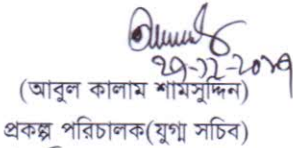 ২৭-১২-২০১৭
(আবুল কালাম শামসুদ্দিন)
প্রকল্প পরিচালক(যুগ্ম সচিব)